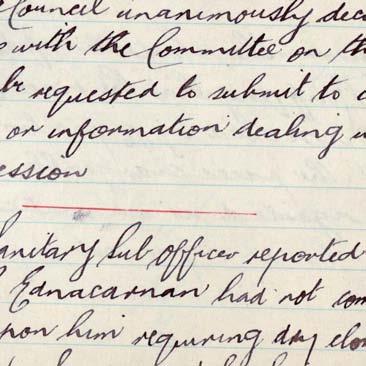 Council unanimously dec
with the Committee on th
be requested to submit to
or information dealing
ession
anitary Sub officer reported
Ednacarnan had not com
pon him requiring dry